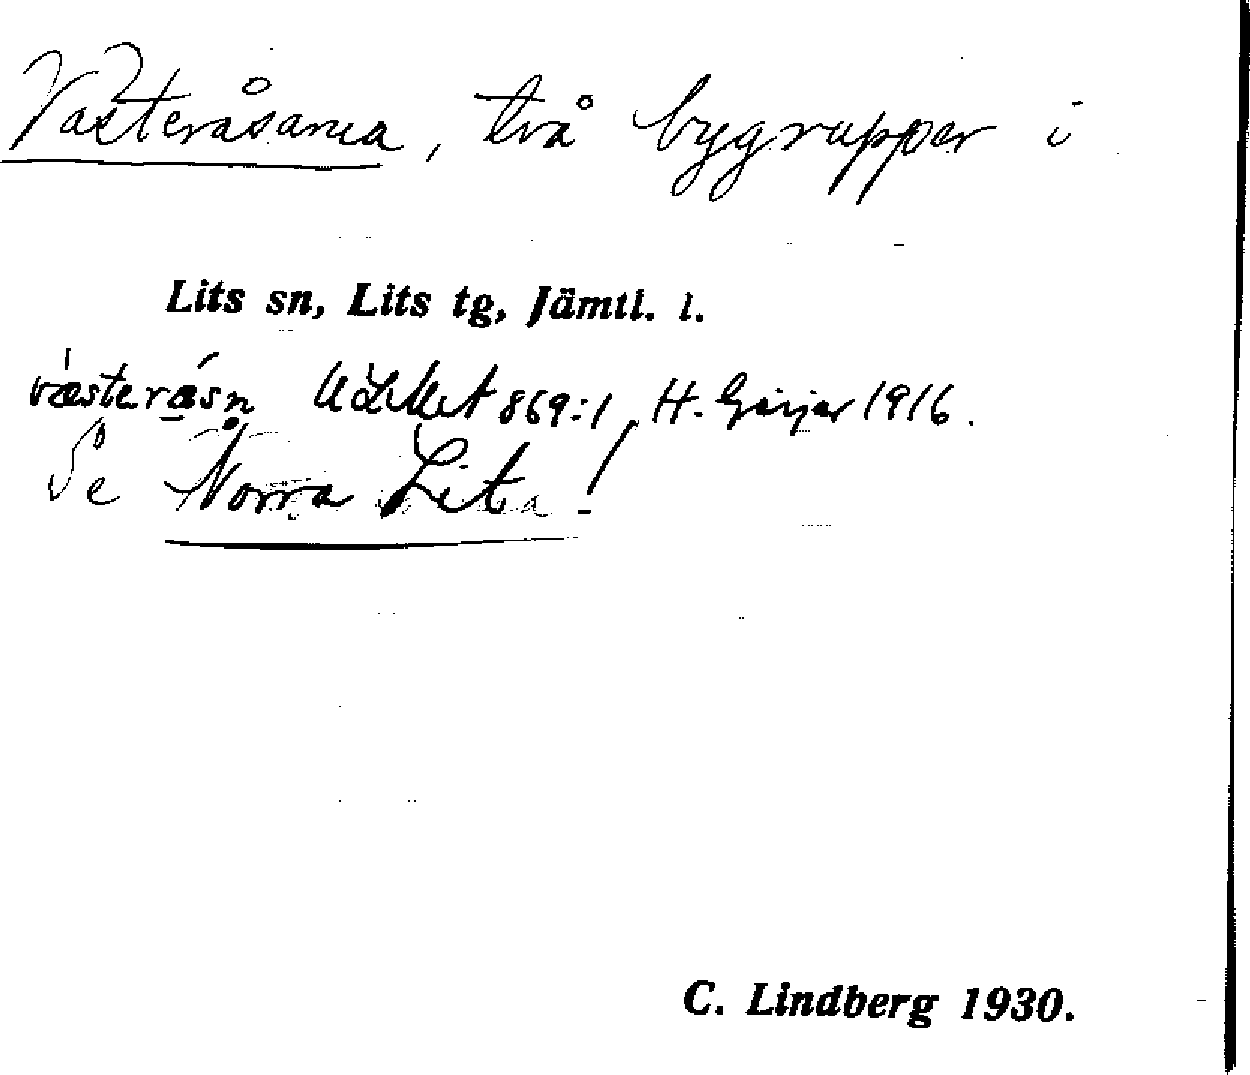 Västeråsarna, två bygrupper i
Lits sn, Lits tg, Jämtl. l.
væsteråsn ULMA 869:1, H. Geijer 1916.
Se Norra Lits!
C. Lindberg 1930.